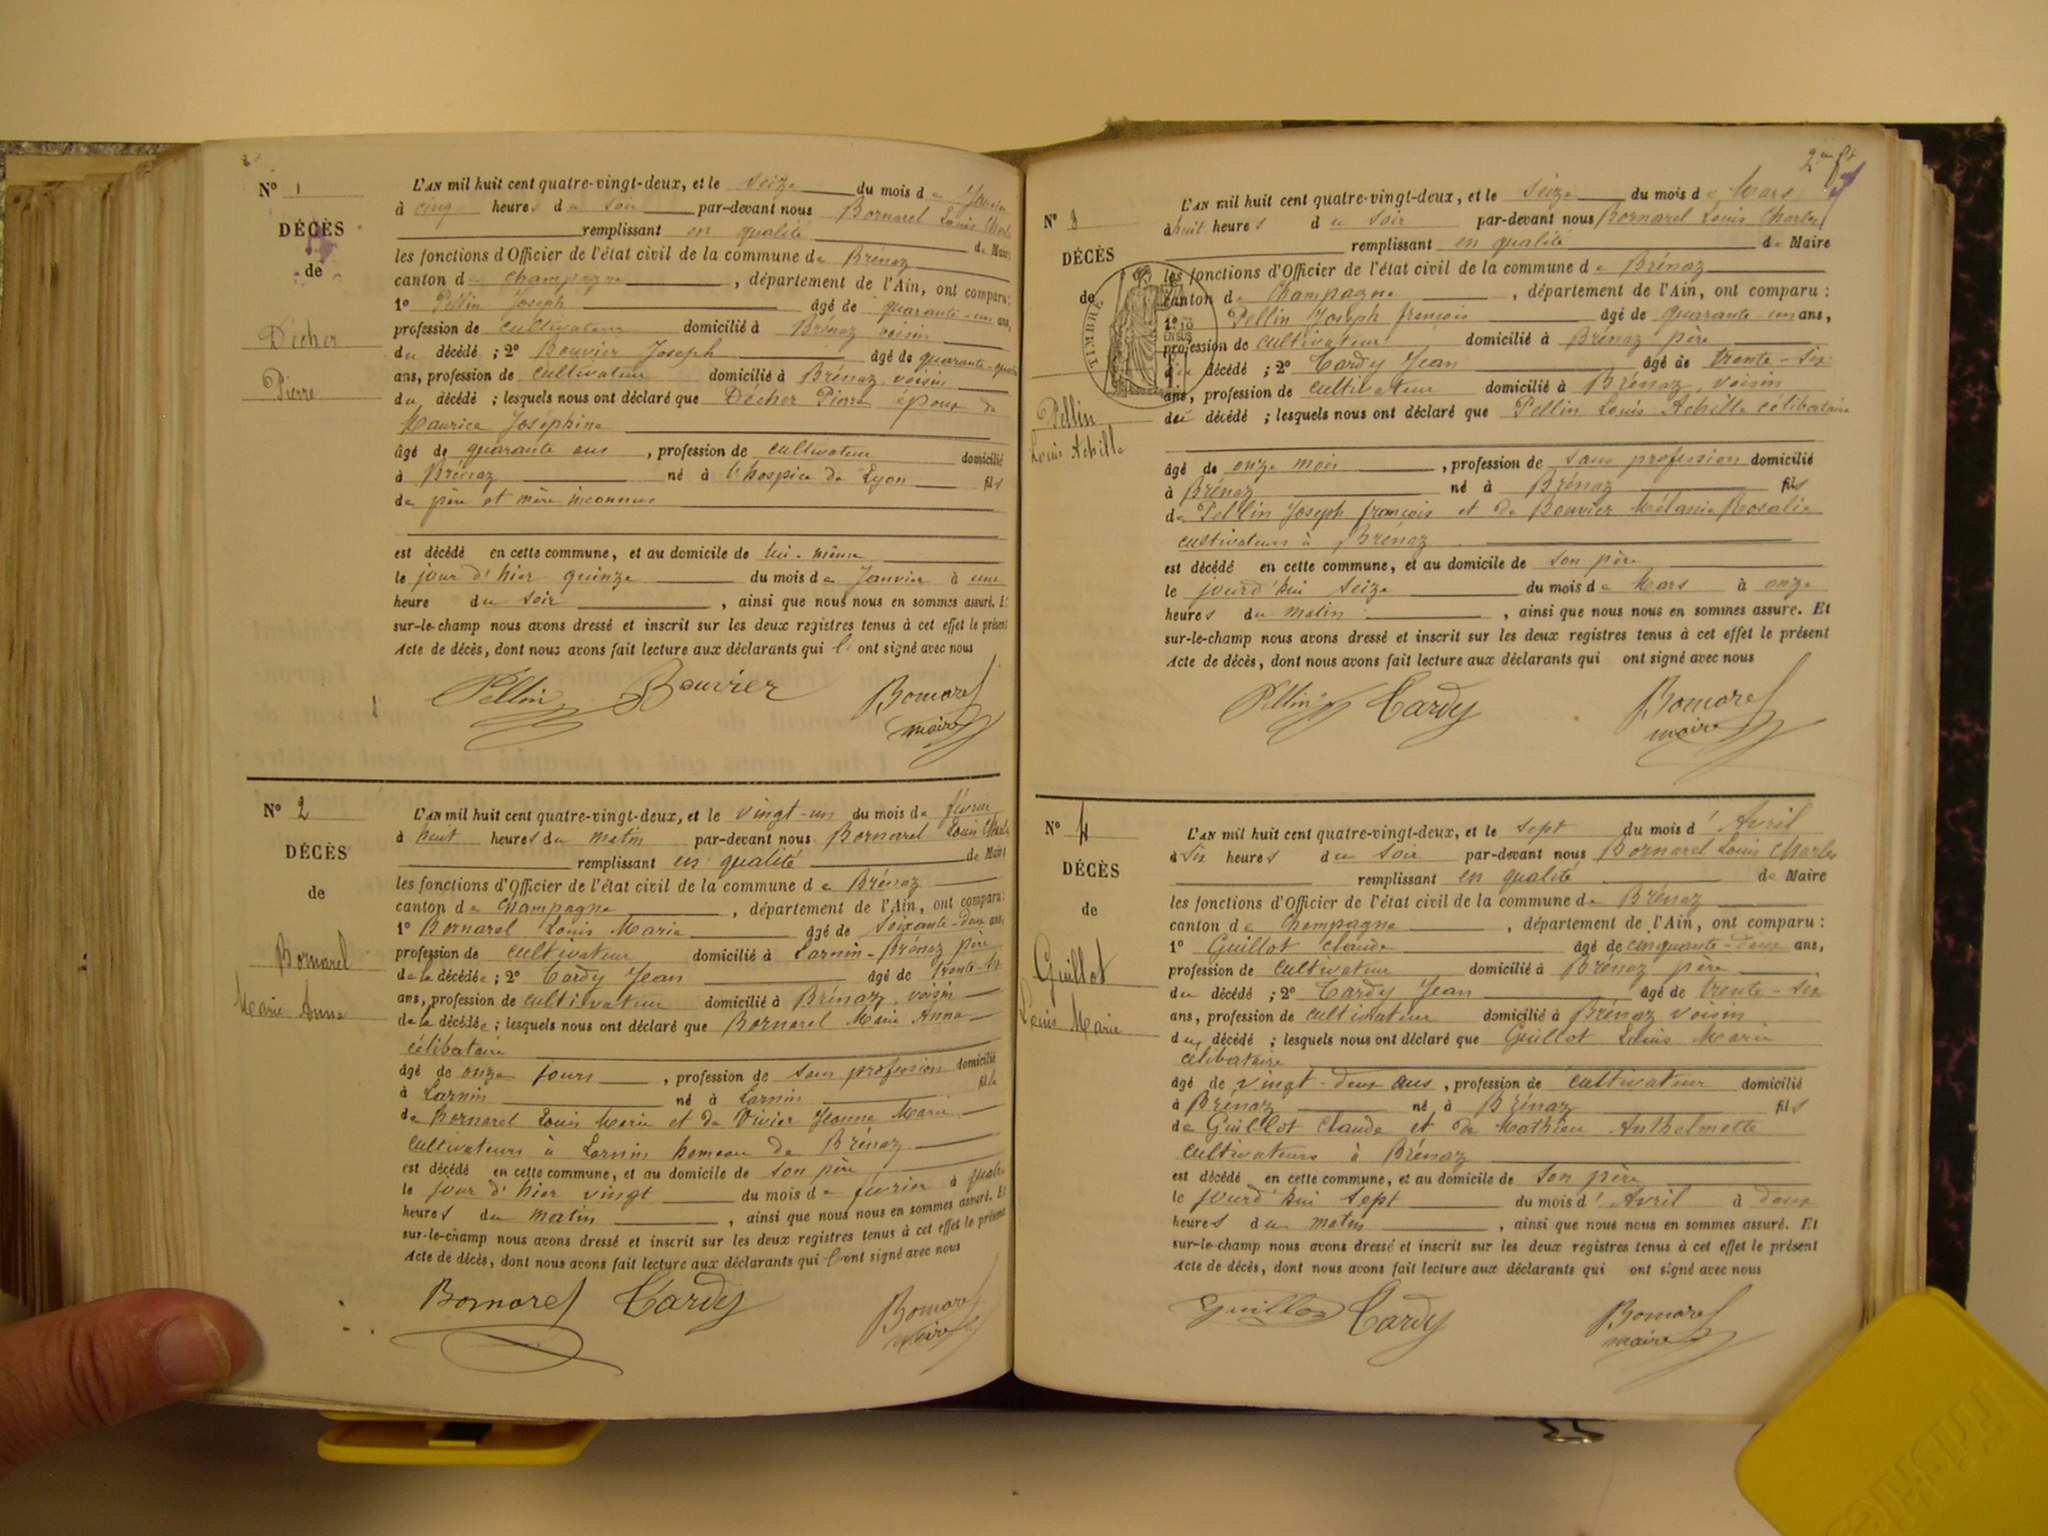 N° 1
DÉCÈS
de
Décher
Pierre
L'AN mil huit cent quatre-vingt-deux, et le seize du mois de Janvier
à cinq heures du soir par-devant nous Bornarel Louis Charles
remplissant en qualité de Maire
les fonctions d'Officier de l'état civil de la commune de Brénaz
canton de Champagne, département de l'Ain, ont comparu :
1° Pellin Joseph âgé de quarante-un ans,
profession de cultivateur domicilié à Brénaz voisin
du décédé ; 2° Bouvier Joseph âgé de quarante-quatre
ans, profession de cultivateur domicilié à Brénaz, voisin
du décédé ; lesquels nous ont déclaré que Décher Pierre époux de
Maurice Joséphine
âgé de quarante ans, profession de cultivateur domicilié
à Brénaz né à l'hospice de Lyon fils
de père et mère inconnus
est décédé en cette commune, et au domicile de lui-même
le jour d'hier quinze du mois de Janvier à une
heure du soir, ainsi que nous nous en sommes assuré. Et
sur-le-champ nous avons dressé et inscrit sur les deux registres tenus à cet effet le présent
Acte de décès, dont nous avons fait lecture aux déclarants qui l' ont signé avec nous
Pellin Bouvier Bornarel
maire
N° 2
DÉCÈS
de
Bornarel
Marie Anna
L'AN mil huit cent quatre-vingt-deux, et le vingt-un du mois de février
à huit heures du matin par-devant nous Bornarel Louis Charles
remplissant en qualité de Maire
les fonctions d'Officier de l'état civil de la commune de Brénaz
canton de Champagne, département de l'Ain, ont comparu :
1° Bornarel Louis Marie âgé de soixante-deux ans,
profession de cultivateur domicilié à Larnin-Brénaz père
de la décédée ; 2° Tardy Jean âgé de trente-six
ans, profession de cultivateur domicilié à Brénaz, voisin
de la décédée ; lesquels nous ont déclaré que Bornarel Marie Anna
célibataire
âgé de onze jours, profession de sans profession domicilié
à Larnin né à Larnin fille
de Bornarel Louis Marie et de Vivier Jeanne Marie
cultivateurs à Larnin hameau de Brénaz
est décédé en cette commune, et au domicile de son père
le jour d'hier vingt du mois de février à quatre
heures du matin, ainsi que nous nous en sommes assuré. Et
sur-le-champ nous avons dressé et inscrit sur les deux registres tenus à cet effet le présent
Acte de décès, dont nous avons fait lecture aux déclarants qui l'ont signé avec nous
Bornarel Tardy Bornarel
maire
N° 3
DÉCÈS
de
TIMBRE
Pellin
Louis Achille
L'AN mil huit cent quatre-vingt-deux, et le seize du mois de Mars
à huit heures du soir par-devant nous Bornarel Louis Charles
remplissant en qualité de Maire
les fonctions d'Officier de l'état civil de la commune de Brénaz
canton de Champagne, département de l'Ain, ont comparu :
1° Pellin Joseph françois âgé de quarante un ans,
profession de cultivateur domicilié à Brénaz père
du décédé ; 2° Tardy Jean âgé de trente-six
ans, profession de cultivateur domicilié à Brénaz, voisin
du décédé ; lesquels nous ont déclaré que Pellin Louis Achille célibataire
âgé de onze mois, profession de sans profession domicilié
à Brénaz né à Brénaz fils
de Pellin Joseph françois et de Bouvier Mélanie Rosalie
cultivateurs à Brénaz
est décédé en cette commune, et au domicile de son père
le jourd'hui seize du mois de Mars à onze
heures du matin, ainsi que nous nous en sommes assuré. Et
sur-le-champ nous avons dressé et inscrit sur les deux registres tenus à cet effet le présent
Acte de décès, dont nous avons fait lecture aux déclarants qui ont signé avec nous
Pellin Tardy Bornarel
maire
N° 4
DÉCÈS
de
Guillot
Louis Marie
L'AN mil huit cent quatre-vingt-deux, et le sept du mois d'Avril
à six heures du soir par-devant nous Bornarel Louis Charles
remplissant en qualité de Maire
les fonctions d'Officier de l'état civil de la commune de Brénaz
canton de Champagne, département de l'Ain, ont comparu :
1° Guillot Claude âgé de cinquante-deux ans,
profession de cultivateur domicilié à Brénaz père
du décédé ; 2° Tardy Jean âgé de trente-six
ans, profession de cultivateur domicilié à Brénaz voisin
du décédé ; lesquels nous ont déclaré que Guillot Louis Marie
célibataire
âgé de vingt-deux ans, profession de cultivateur domicilié
à Brénaz né à Brénaz fils
de Guillot Claude et de Mathieu Anthelmette
cultivateurs à Brénaz
est décédé en cette commune, et au domicile de son père
le jourd'hui sept du mois d'Avril à deux
heures du matin, ainsi que nous nous en sommes assuré. Et
sur-le-champ nous avons dressé et inscrit sur les deux registres tenus à cet effet le présent
Acte de décès, dont nous avons fait lecture aux déclarants qui ont signé avec nous
Guillot Tardy Bornarel
maire